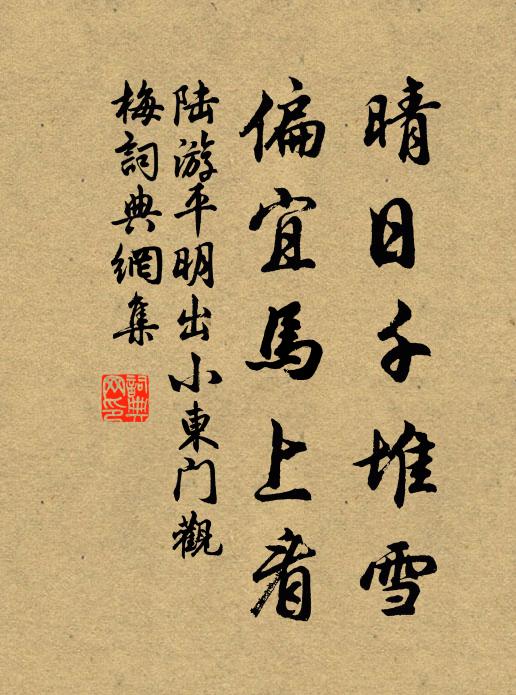 晴日千堆雪
偏宜馬上看
陆游平明出小東门觀
梅詞典網集
詞典
网印